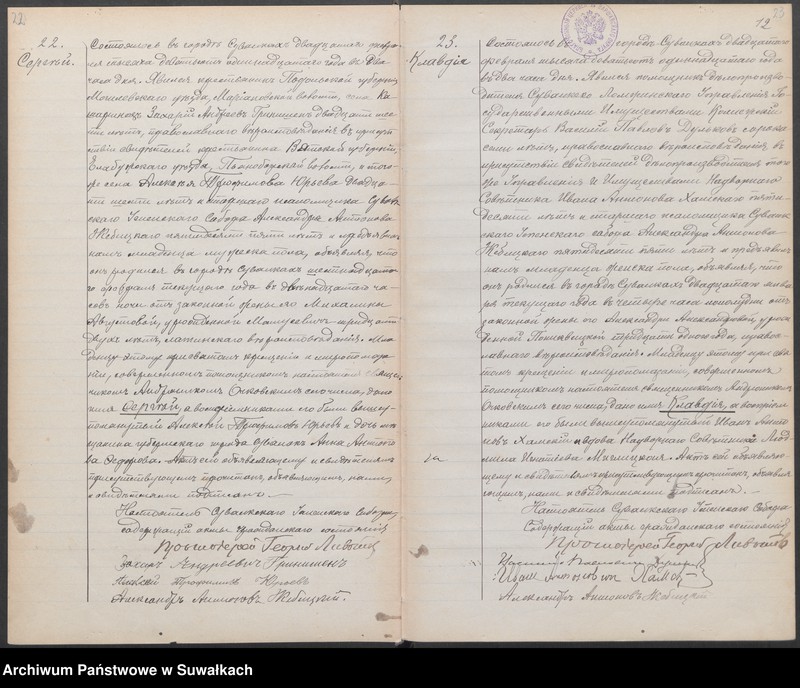 22
22.
Сергѣй.
Состоялось въ городѣ Сувалкахъ двадцатаго февра-
ля тысяча девятьсотъ одиннадцатаго года въ два
часа дня. Явился крестьянинъ Подольской губерніи
Могилевскаго уѣзда, Маріановской волости, села
Захарій Андреевъ Гринишенъ двадцати шес-
ти лѣтъ, православнаго вѣроисповѣданія въ присут-
ствіи свидѣтелей крестьянина Вятской губерніи,
Елабужскаго уѣзда, волости, и того-
же села Алексѣя Трофимова Юрьева двадца-
ти шести лѣтъ и старшаго псаломщика Сувалк-
скаго Успенскаго Собора Александра Антонова
Жебицкаго пятидесяти пяти лѣтъ и предъявилъ
намъ младенца мужеска пола, объявляя, что
онъ родился въ городѣ Сувалкахъ шестнадцата-
го февраля текущаго года въ двѣнадцатаго ча-
совъ ночи отъ законной жены его Михалины
Августовой, урожденной тридцати
двухъ лѣтъ, латинскаго вѣроисповѣданія. Мла-
денцу этому при святомъ крещеніи и миропомаза-
ніи, совершенномъ помощникомъ настоятеля Священ-
никомъ сего числа, дано
имя Сергѣй, а воспріемниками его были вышеу-
помянутый Алексѣй Трофимовъ Юрьевъ и дочь мѣ-
щанина губернскаго города Сувалокъ Анна Антоно-
ва Федорова. Актъ сей объявляющему и свидѣтелямъ
присутствующимъ прочитанъ, объявляющимъ, нами,
и свидѣтелями подписанъ.
Настоятель Сувалкскаго Успенскаго Собора,
содержащій акты гражданскаго состоянія
Протоіерей Георгій
Захаръ Андреевичъ Гринишенъ
Алексѣй Трофимовъ Юрьевъ
Александръ Антоновъ Жебицкій.
23
12
23.
Клавдія
Состоялось въ городѣ Сувалкахъ двадцатаго
февраля тысяча девятьсотъ одиннадцатаго года
въ два часа дня. Явился помощникъ дѣлопроизво-
дителя Сувалкско Ломжинскаго Управленія Го-
сударственными Имуществами Коллежскій
Секретарь Василій Павловъ сорока
семи лѣтъ, православнаго вѣроисповѣданія въ
присутствіи свидѣтелей Дѣлопроизводителя того
же Управленія и Имуществами Надворнаго
Совѣтника Ивана Антонова Хамскаго пяти-
десяти лѣтъ и старшаго псаломщика Сувалк-
скаго Успенскаго собора Александра Антонова
Жебицкаго пятидесяти пяти лѣтъ и предъявилъ
намъ младенца женска пола, объявляя, что
онъ родился въ городѣ Сувалкахъ двадцатаго янва-
ря текущаго года въ четыре часа пополудни отъ
законной жены его Александры Александровой, урож-
денной тридцати одного года, право-
славнаго вѣроисповѣданія. Младенцу этому при свя-
томъ крещеніи и миропомазаніи, совершенномъ
помощникомъ настоятеля священникомъ
сего числа, дано имя Клавдія, а воспріем-
никами его были вышеупомянутый Иванъ Антоно-
новъ Хамскій и вдова Надворнаго Совѣтника Люд-
мила Игнатіева Актъ сей объявляю-
щему и свидѣтелямъ присутствующимъ прочитанъ, объявля-
ющимъ, нами и свидѣтелями подписанъ.
Настоятель Сувалкскаго Успенскаго Собора
Содержащій акты гражданскаго состоянія
Протоіерей Георгій
Александръ Антоновъ Жебицкій
Archiwum Państwowe w Suwałkach